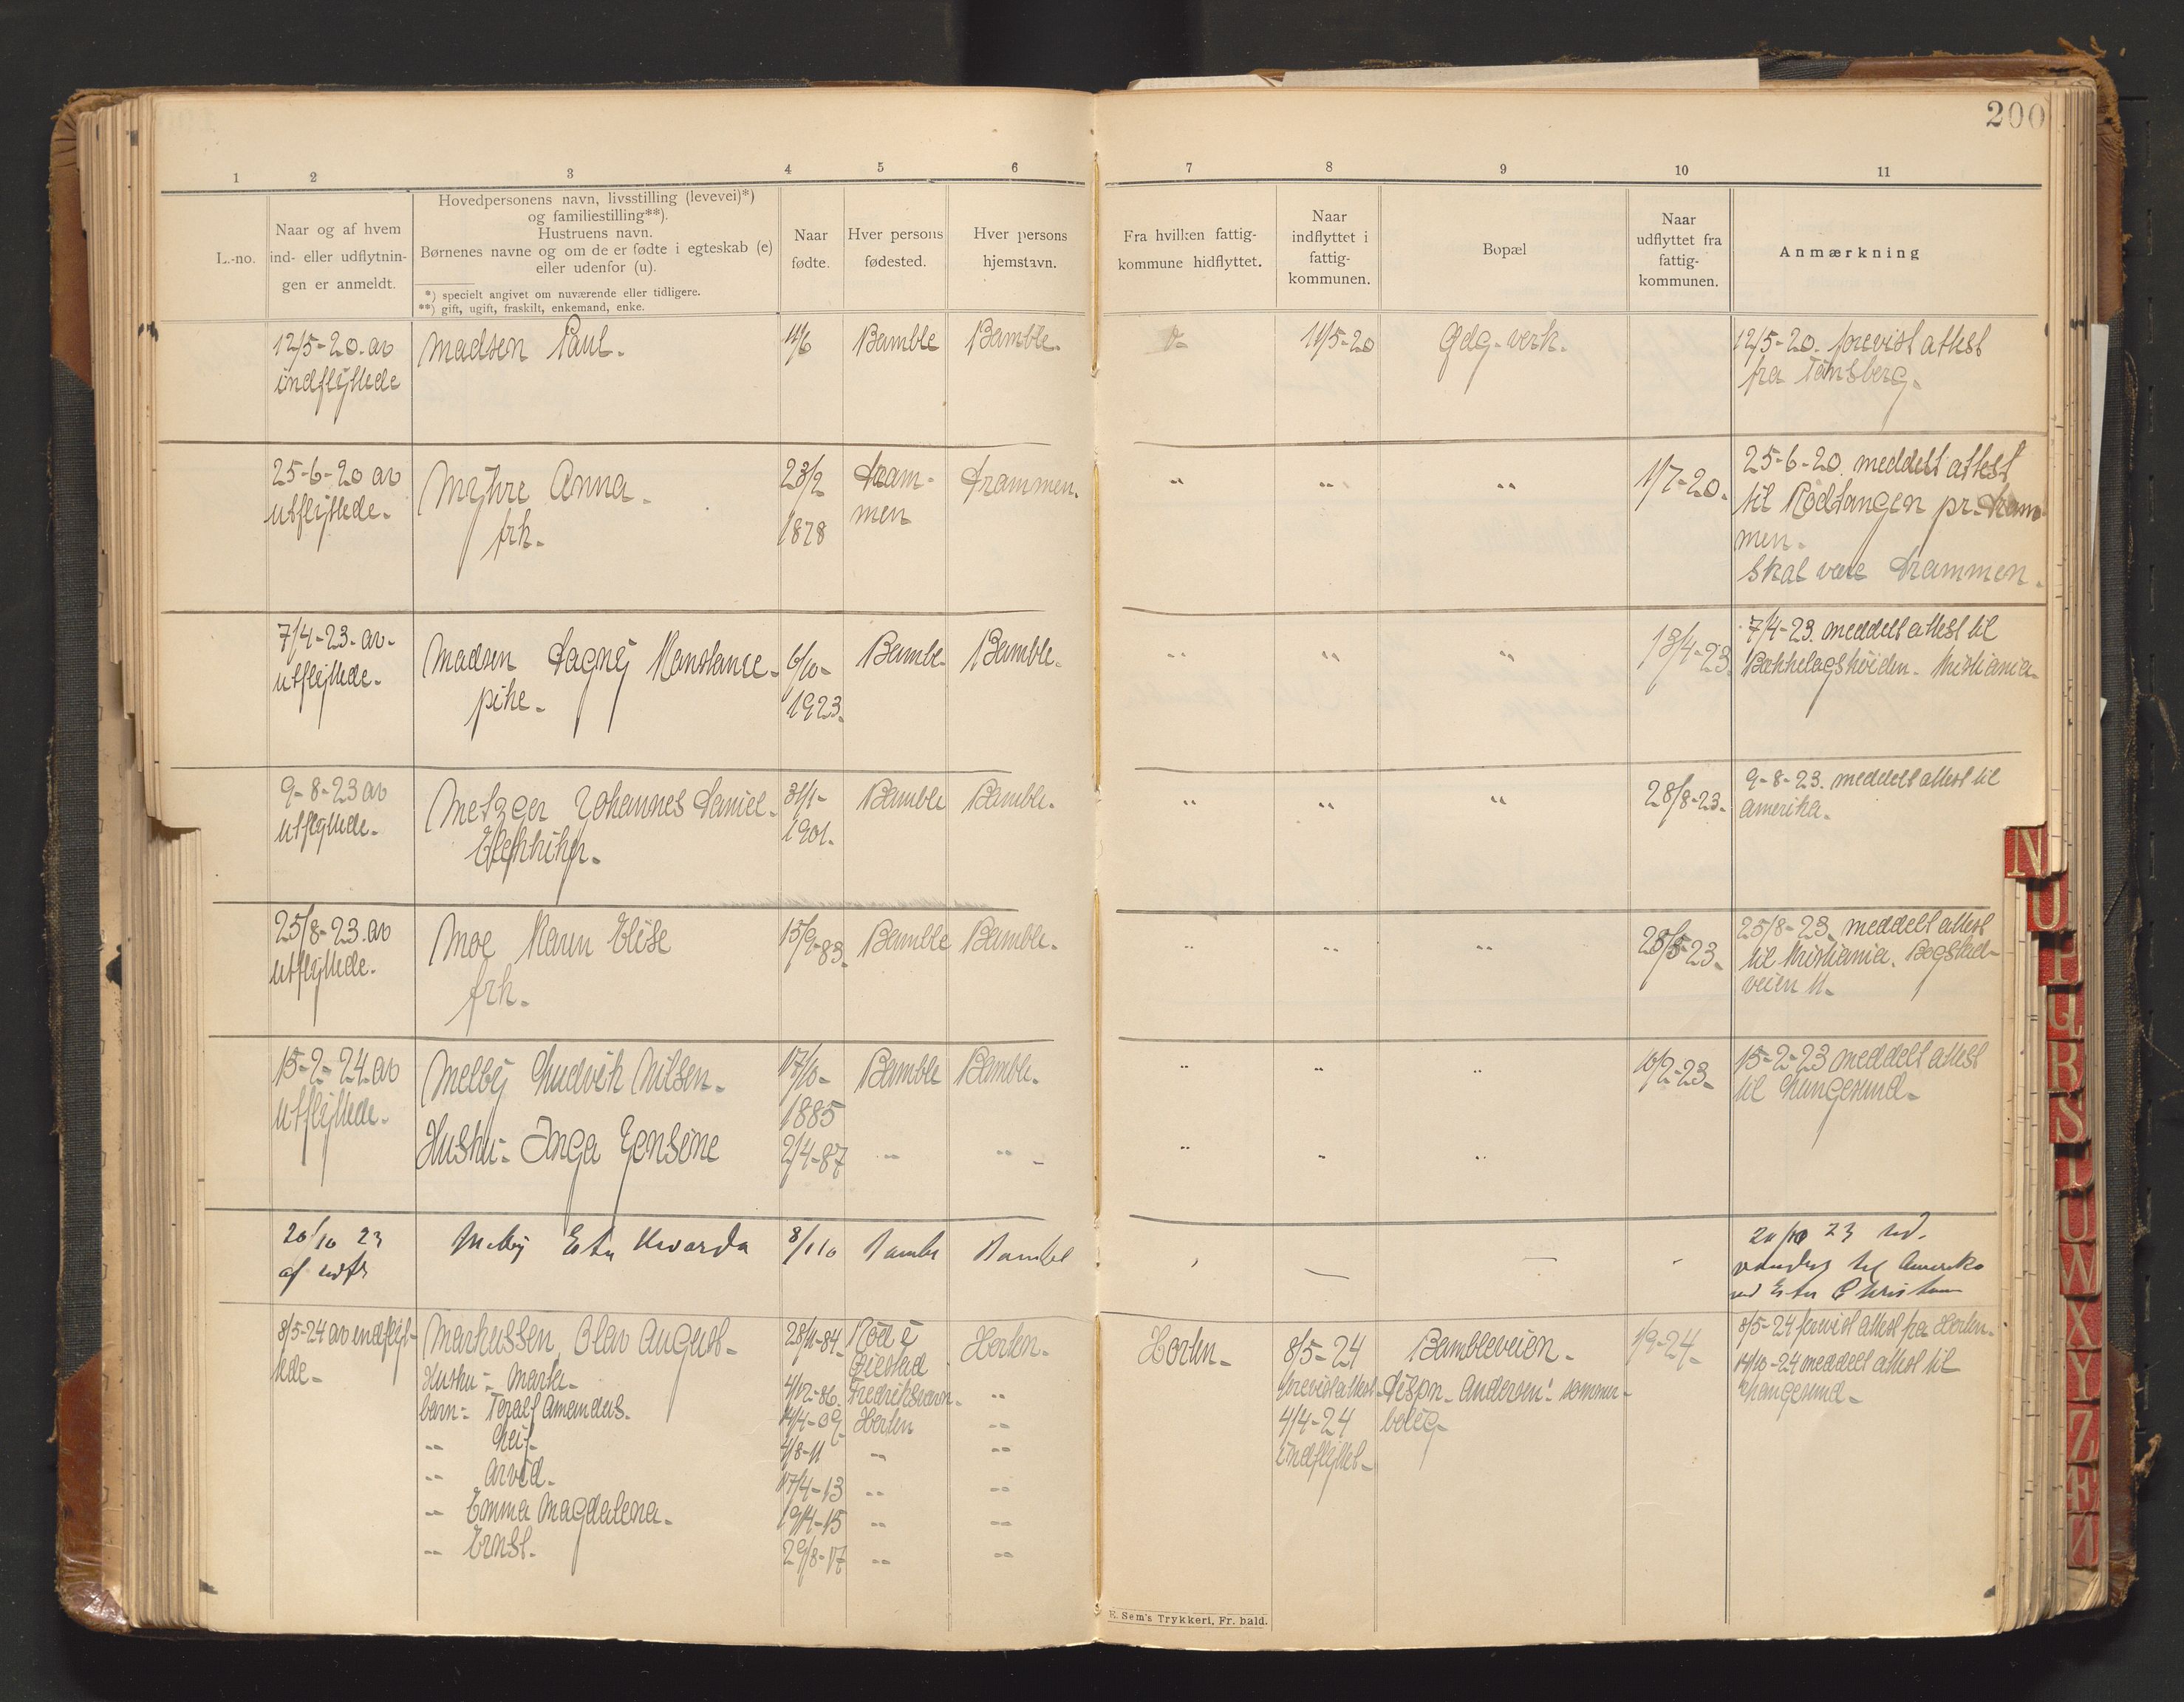 200
1 2 3 4 5 6 7 8 9 10 11
L.-no.
Naar og af hvem
ind- eller udflytnin-
gen er anmeldt.
Hovedpersonens navn, livsstilling (levevei)*)
og familiestilling**).
Hustruens navn.
Børnenes navne og om de er fødte i egteskab (e)
eller udenfor (u).
*) specielt angivet om nuværende eller tidligere.
**) gift, ugift, fraskilt, enkemand, enke.
Naar
fødte.
Hver persons
fødested.
Hver persons
hjemstavn.
Fra hvilken fattig-
kommune hidflyttet.
Naar
indflyttet i
fattig-
kommunen.
Bopæl
Naar
udflyttet fra
fattig-
kommunen.
Anmærkning
12/5-20. av
indflyttede
Madsen Paul.
Bamble
Bamble.
11/5-20
12/5-20. forevist attest
fra Tønsberg.
25-6-20 av
utflyttede.
Myhre Anna.
frk.
23/2
1878
Dram-
men
Drammen.
" " "
1/7-20.
25-6-20. meddelt attest
til Rødtangen pr. Dram-
men.
Skal være Drammen.
7/4-23. av.
utflyttede.
Madsen Dagny Konstance.
pike.
6/10-
1923.
Bamble.
Bamble.
" " "
13/4-23
7/4-23. meddelt attest til
Bækkelagshøiden. Kristiania.
9-8-23 av
utflyttede.
Metzger Johannes Daniel.
31/1-
1901.
Bamble
Bamble.
" " "
28/8-23.
9-8-23. meddelt attest til
Amerika.
25/8-23. av
utflyttede.
Moe Karen Elise
frk.
15/9-83.
Bamble
Bamble.
" " "
25/8-23. meddelt attest
til Kristiania. Bogstad-
veien 11.
15-2-24. av
utflyttede.
Melby Ludvik Nilsen.
17/10-
1885
Bamble
Bamble.
" " "
10/2-23.
15-2-23 meddelt attest
til Langesund.
Hustru- Inga Jensine
2/4-87
" "
" " "
20/10 23
af udfl
8/1 10
20/10 23
til Amerika
8/5-24 av indflyt-
tede.
Markussen, Olav August.
28/11-84.
Horten.
Horten.
8/5-24
Bambleveien.
1/9-24.
8/5-24 forevist attest fra Horten.
Hustru- Marta.
4/12-86.
Fredriksværn.
"
forevist attest.
Disp. Andersen's sommer-
14/10-24 meddelt attest til
Langesund.
barn- Toralf Amandus.
14/4-09
Horten
"
4/4-24
bolig.
" Leif.
4/8-11
" "
indflyttet.
" Arvid.
17/4-13
" "
" Emma Magdalena.
19/4-15
" "
" Ernst.
29/8-17
" "
E. Sem's Trykkeri, Fr. hald.
N
O
P
Q
R
S
T
U
W
X
Y
Z
Æ
Ø